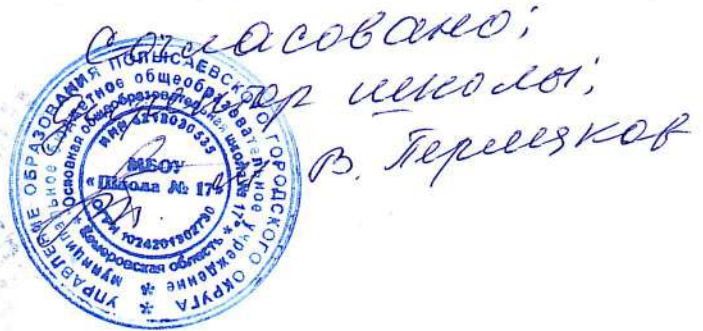 Согласовано:
директор школы:
В. Пермяков
УПРАВЛЕНИЕ ОБРАЗОВАНИЯ ПОЛЫСАЕВСКОГО ГОРОДСКОГО ОКРУГА
муниципальное бюджетное общеобразовательное учреждение
Основная общеобразовательная школа № 17»
* Кемеровская область *
ИНН 4212020535
МБОУ
«Школа № 17»
ОГРН 1024201302730